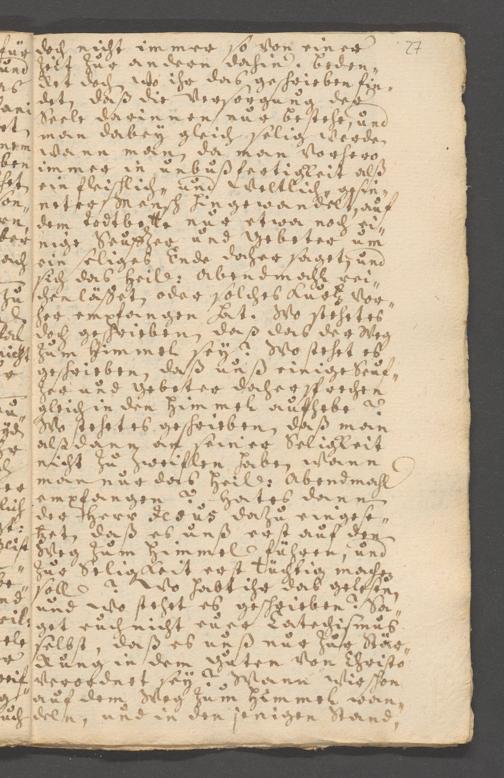 27
doch nicht immer so von einer
Zeit zur andern dahin. beden-
ket doch, wo ihr das geschrieben fin-
det, daß die Versorgung der
Seele darinnen nur bestehe, und
man dabey gleich selig werde,
wann man, da man vorhero
immer in unbußfertigkeit alß
ein fleischlich- und Weltlich-gesin-
neter Mensch hingewandelt, auf
dem Todtbette nur etwa noch ei-
nige Seufzer und Gebeter um
ein seliges Ende daher saget, und
sich das Heil: Abendmahl rei-
chen lässet, oder solches kurtz vor-
her empfangen hat. Wo stehetes
doch geschrieben, daß das der Weg
zum Himmel sey? Wo stehet es
geschrieben, daß unß einige Seuf-
zer und Gebeter daher sprechen
gleich in den Himmel aufhebe?
Wo stehetes geschrieben, daß man
alßdann an seiner Seligkeit
nicht zu zweiflen habe, wann
man nur das Heil: Abendmahl
empfangen? Hat es dann
der Herr Jesus dazu eingese-
tzet, daß es unß erst auf den
Weg zum Himmel führen, und
zur Seligkeit erst tüchtig machen
soll? Wo habt ihr das gelesen,
und wo stehet es geschrieben? Sa-
get euch nicht eure Catechismus
selbst, daß es unß nur zur Stär-
kung in dem Guten von Christo
verordnet sey? Wann wir schon
auf dem Weg zum Himmel wan-
deln, und in den jenigen Stand,